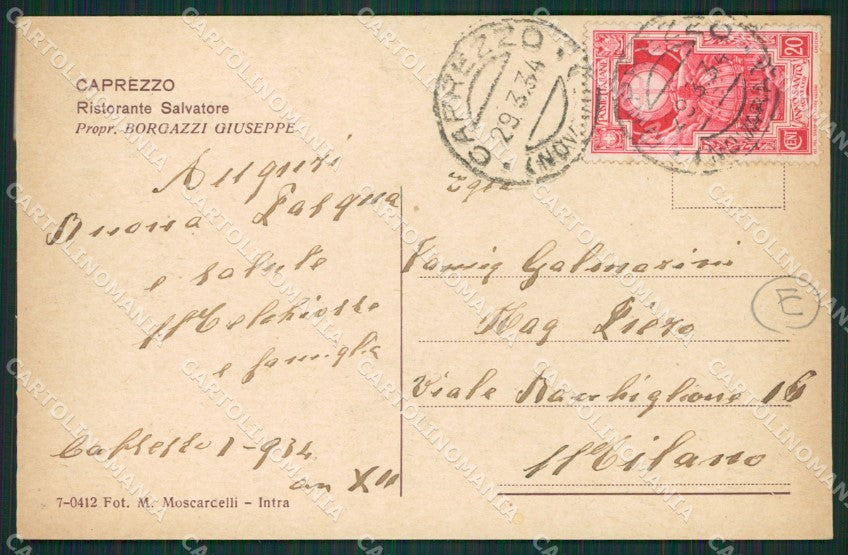 CAPREZZO
Ristorante Salvatore
Propr. BORGAZZI GIUSEPPE
Auguri
Buona Pasqua
e salute
Melchiorre
e famiglia
Caprezzo 1-934
an XII
7-0412 Fot. M. Moscardelli - Intra
CAPREZZO
29.3.34
(NOVARA)
POSTE ITALIANE
ANNO SANTO
20
CENT
Famig Galmarini
Rag Piero
Viale 16
Milano
CARTOLINOMANIA